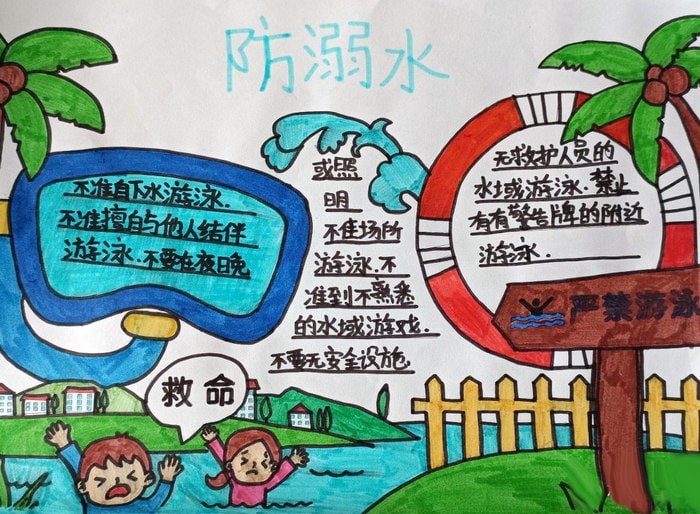 防溺水
不准自下水游泳.
不准擅自与他人结伴
游泳.不要在夜日晚
或照
明
不佳场所
游泳.不
准到不熟悉
的水域游戏.
不要无安全设施.
无救护人员的
水域游泳.禁止
有有警告牌的附近
游泳.
严禁游泳
救命